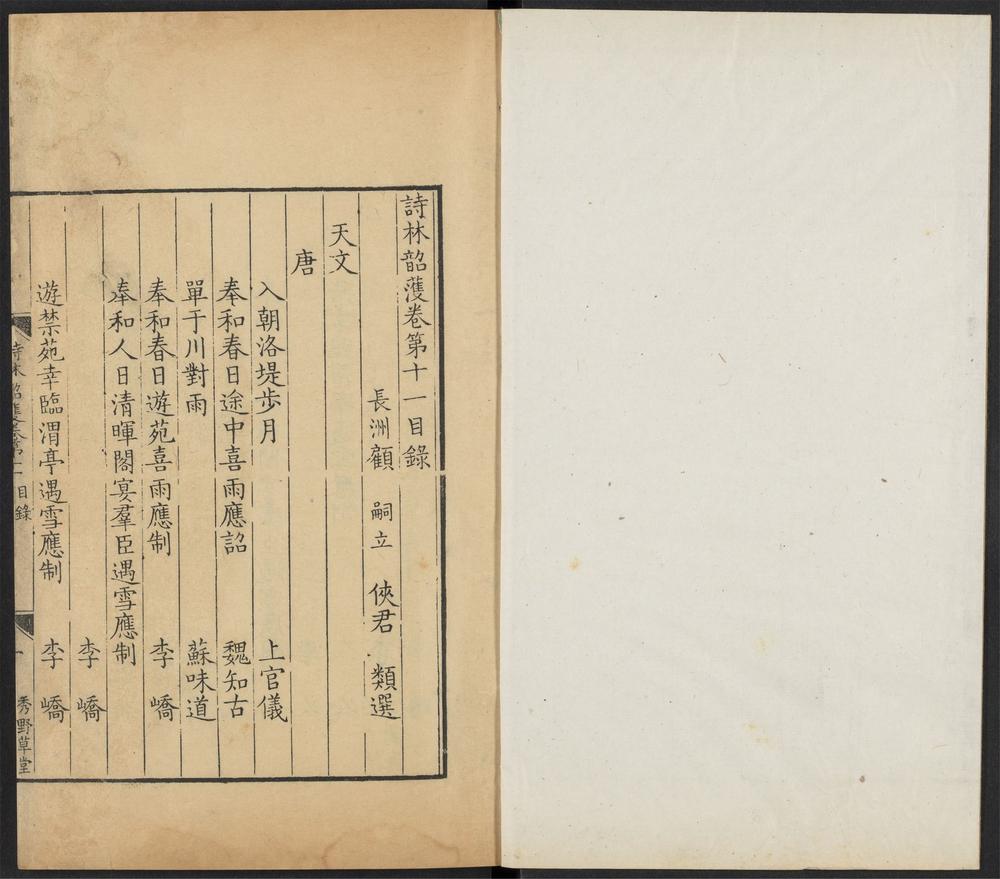 詩林韶頀卷第十一目錄
長洲顧 嗣立 俠君 類選
天文
唐
入朝洛堤步月 上官儀
奉和春日途中喜雨應詔 魏知古
單于川對雨 蘇味道
奉和春日遊苑喜雨應制 李嶠
奉和人日清暉閣宴羣臣遇雪應制
李嶠
遊禁苑幸臨渭亭遇雪應制 李嶠
詩林韶頀卷第十一 目錄 一 秀野草堂